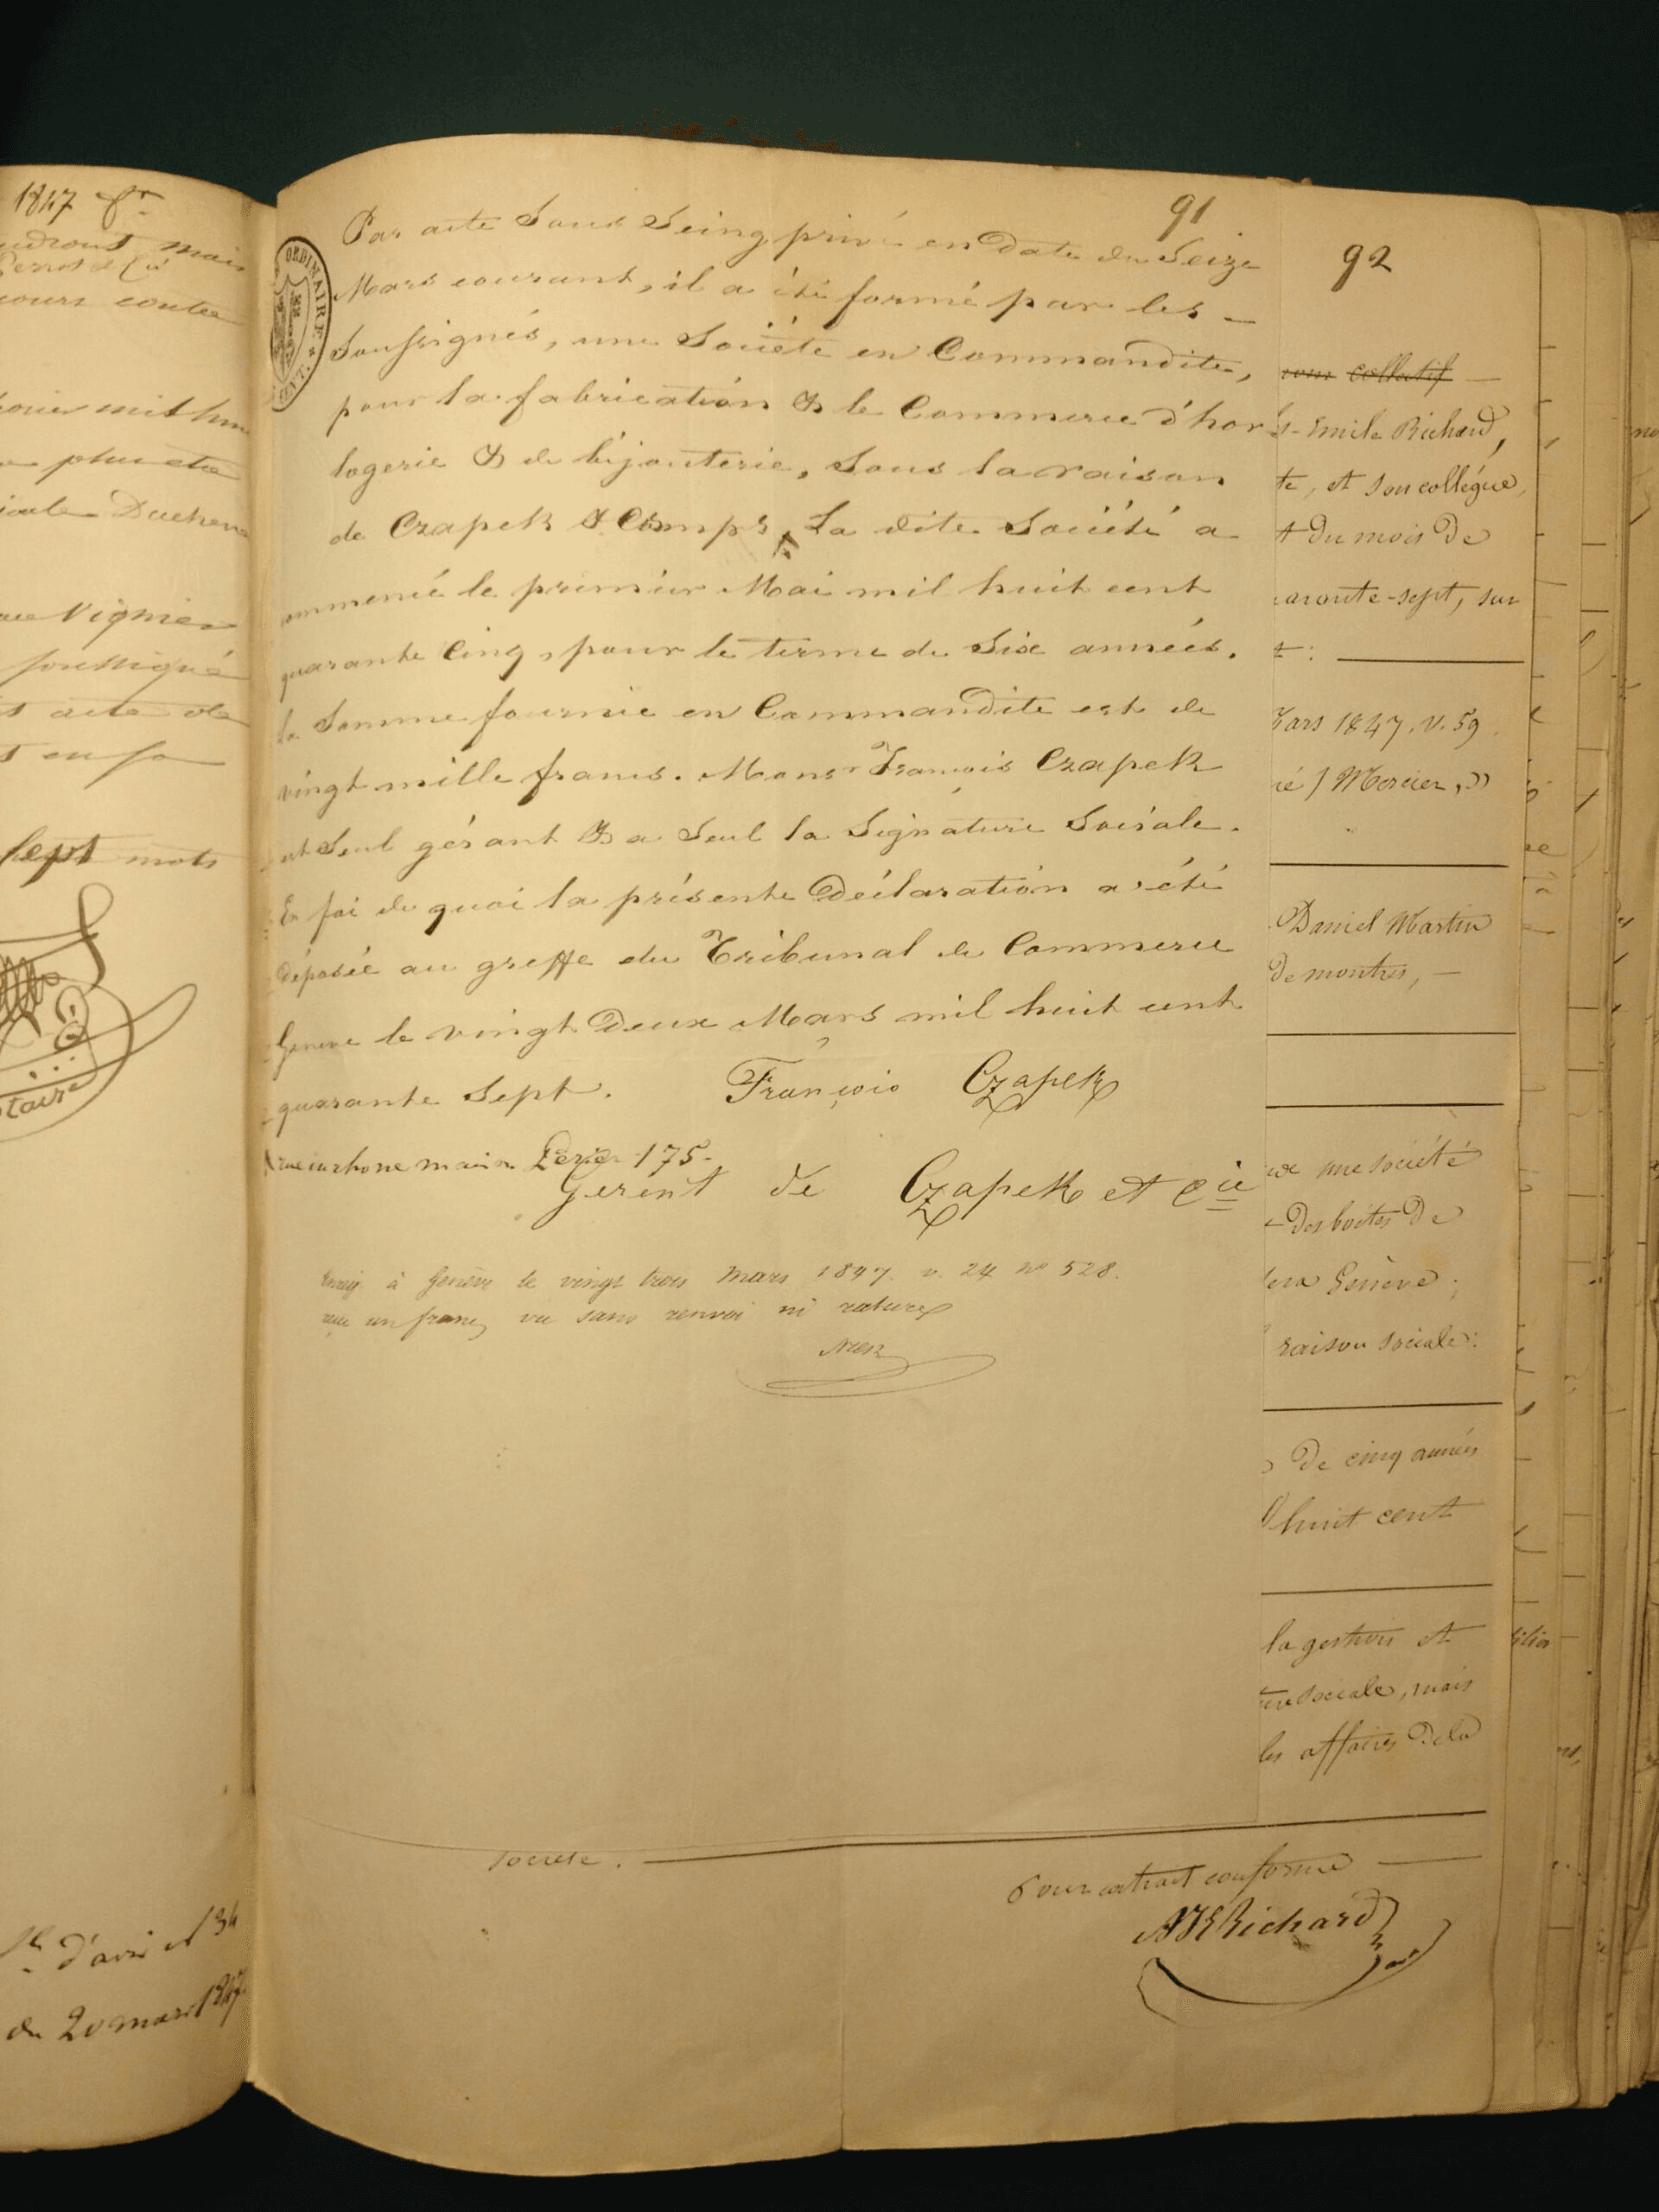 1847
mais
Perrot & Cie
cours contre
plus etre
Duchene
Vignier
soussigné
acte de
sept mots
d'avis
du 20 mars 1847
ORDINAIRE
91
Par acte Sous Seing privé en Date du Seize
Mars courant, il a été formé par les –
Soussignés, une Société en Commandite,
pour la fabrication & le Commerce d'hor
logerie & de bijouterie, Sous la raison
de Czapek & Comp^e, La dite Société a
ommencé le premier Mai mil huit cent
quarante Cinq, pour le terme de Six années.
la Somme fournie en Commandite est de
vingt mille francs. Mons^r François Czapek
est Seul gérant & a Seul la Signature Sociale.
En foi de quoi la présente Déclaration a été
déposée au greffe du Tribunal de Commerce
Geneve le vingt Deux Mars mil huit cent
quarante Sept.
François Czapek
175.
Gerent de Czapek et Cie
Enreg. à Genève le vingt trois Mars 1847. v. 24 n° 528.
reçu un franc, vu sans renvoi ni rature
92
collectif
Emile Richard,
te, et son collégue,
t Du mois De
aronte-sept, sur
Mars 1847. V. 59.
né / Mercier, »
Daniel Martin
De montres, –
une société
Des boites De
sera Genève;
raison sociale:
De cinq années
huit cent
la gestion et
ture sociale, mais
les affaires De la
Société.
Pour extrait conforme
Richard